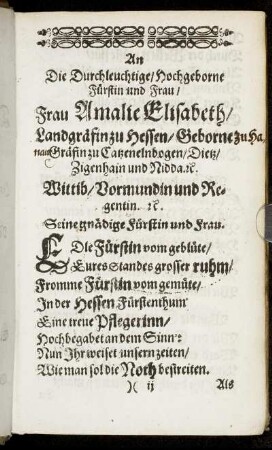 An
Die Durchleuchtige/ Hochgeborne
Fürstin und Frau/
Frau Amalie Elisabeth/
Landgräfin zu Hessen/ Geborne zu Ha
nau Gräfin zu Catzenelnbogen/ Dietz/
Zigenhain und Nidda. ꝛc.
Wittib/ Vormundin und Re-
gentin. ꝛc.
Seine gnädige Fürstin und Frau.
EDle Fürstin vom geblüte/
Eures Standes grosser ruhm/
Fromme Fürstin vom gemüte/
In der Hessen Fürstenthum
Eine treue Pflegerinn/
Hochbegabet an dem Sinn:
Nun Ihr weiset unsern zeiten/
Wie man sol die Noth bestreiten.
)( ij Als